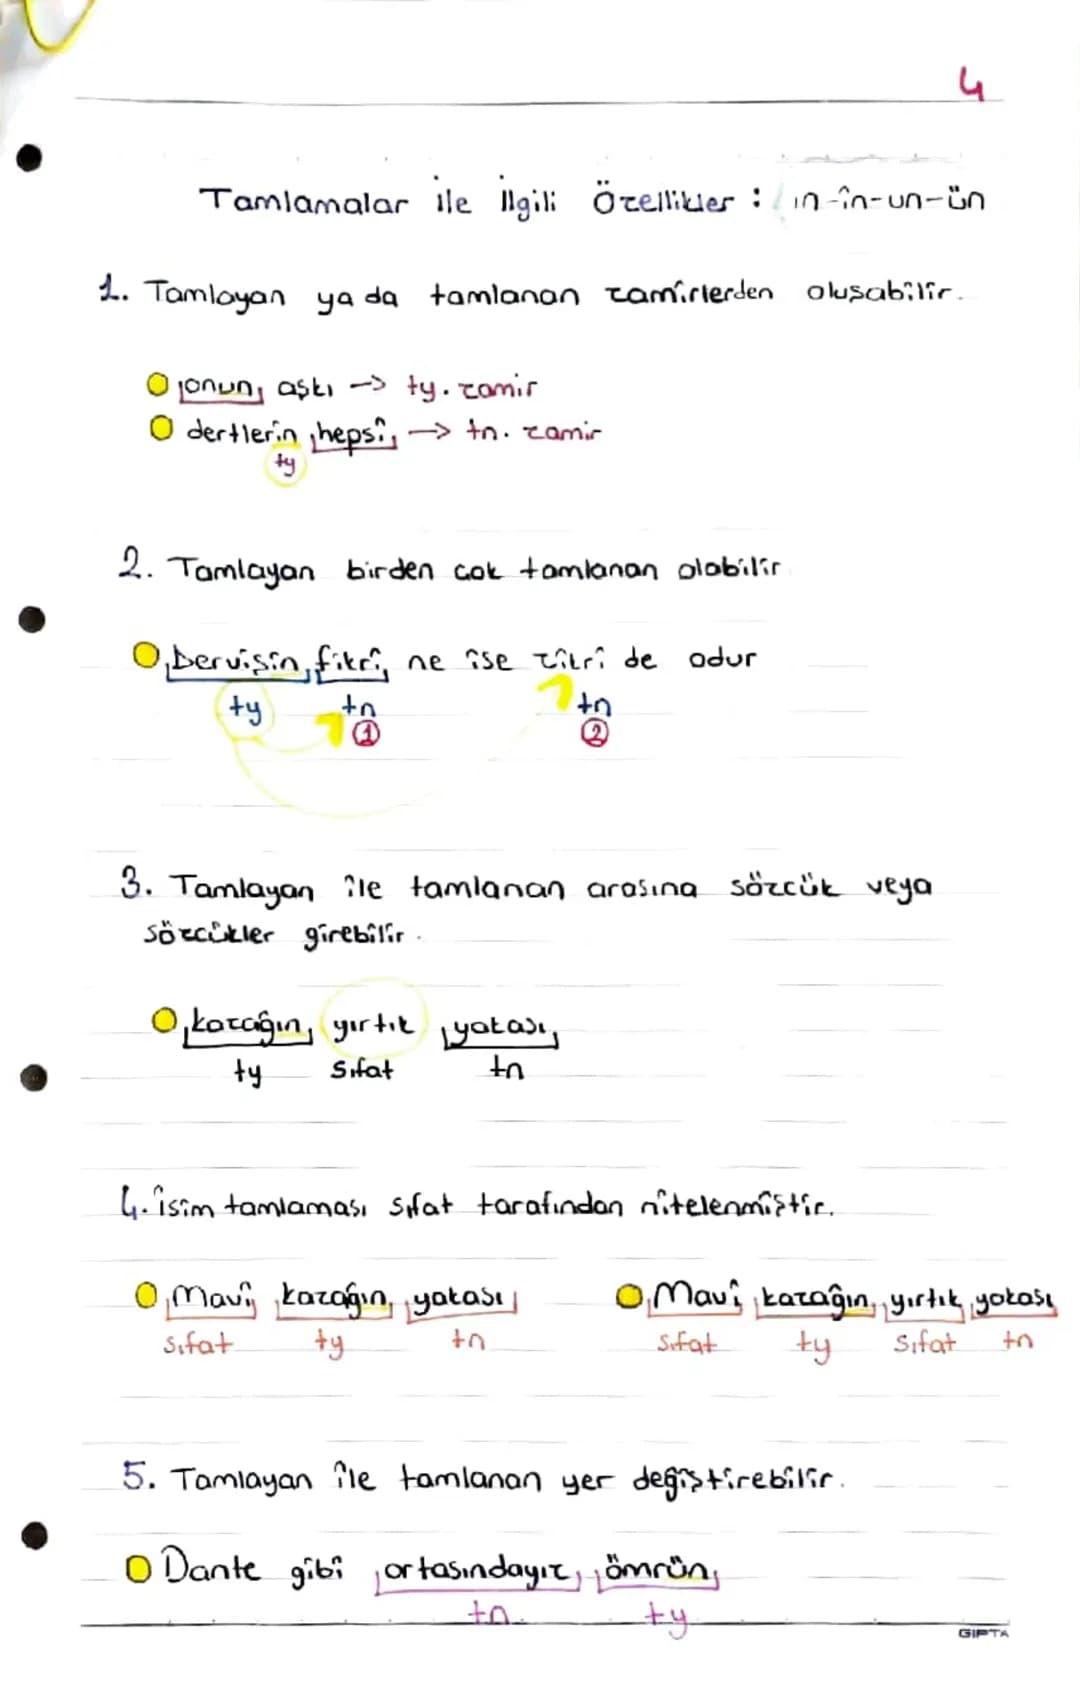 4
Tamlamalar ile İlgili Özellikler : ın-in-un-ün
1. Tamlayan ya da tamlanan zamirlerden oluşabilir.
onun aşkı -> ty. zamir
dertlerin hepsi -> tn. zamir
ty
2. Tamlayan birden çok tamlanan olabilir
Dervişin fikri ne ise zikri de odur
ty tn tn
1 2
3. Tamlayan ile tamlanan arasına sözcük veya
sözcükler girebilir.
kazağın yırtık yakası
ty sıfat tn
4. isim tamlaması sıfat tarafından nitelenmiştir.
Mavi kazağın yakası Mavi kazağın yırtık yakası
sıfat ty tn sıfat ty sıfat tn
5. Tamlayan ile tamlanan yer değiştirebilir.
Dante gibi ortasındayız ömrün
tn ty
GIPTA